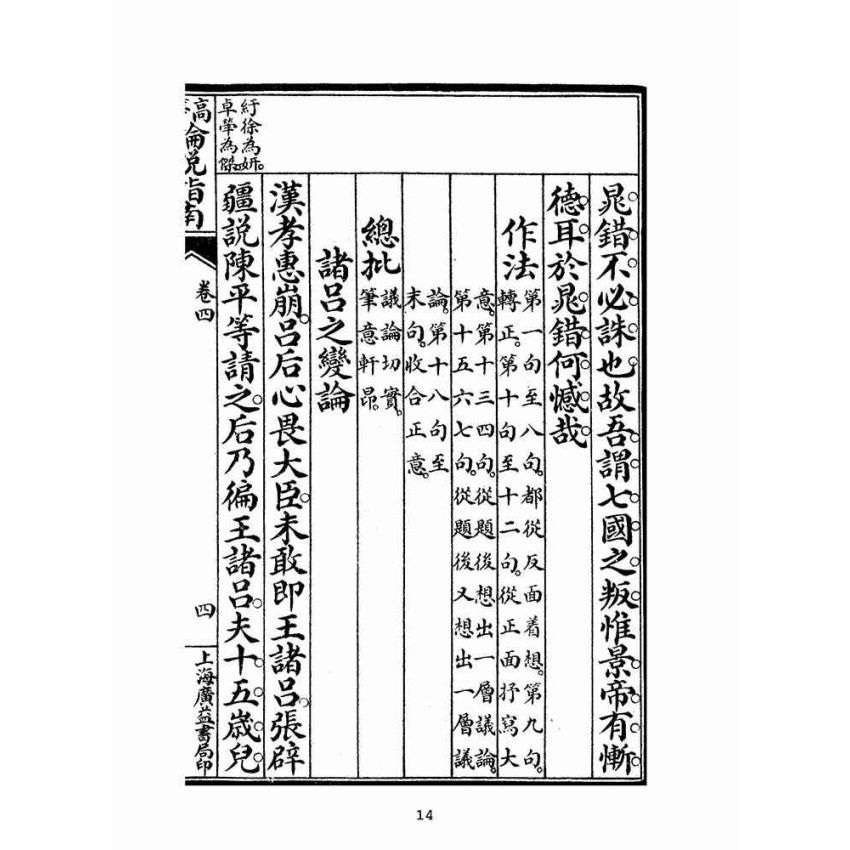 晁錯不必誅也故吾謂七國之叛惟景帝有慚
德耳於晁錯何憾哉
作法
第一句至八句。都從反面着想。第九句。
轉正。第十句至十二句。從正面抒寫大
意。第十三四句。從題後想出一層議論。
第十五六七句。從題後又想出一層議
論。第十八句至
末句。收合正意。
總批
議論切實。
筆意軒昂。
諸呂之變論
漢孝惠崩。呂后心畏大臣。未敢即王諸呂。張辟
疆說陳平等請之。后乃徧王諸呂。夫十五歲兒。
紆徐為妍。
卓犖為傑。
高 論說指南
卷四
四
上海廣益書局印
14